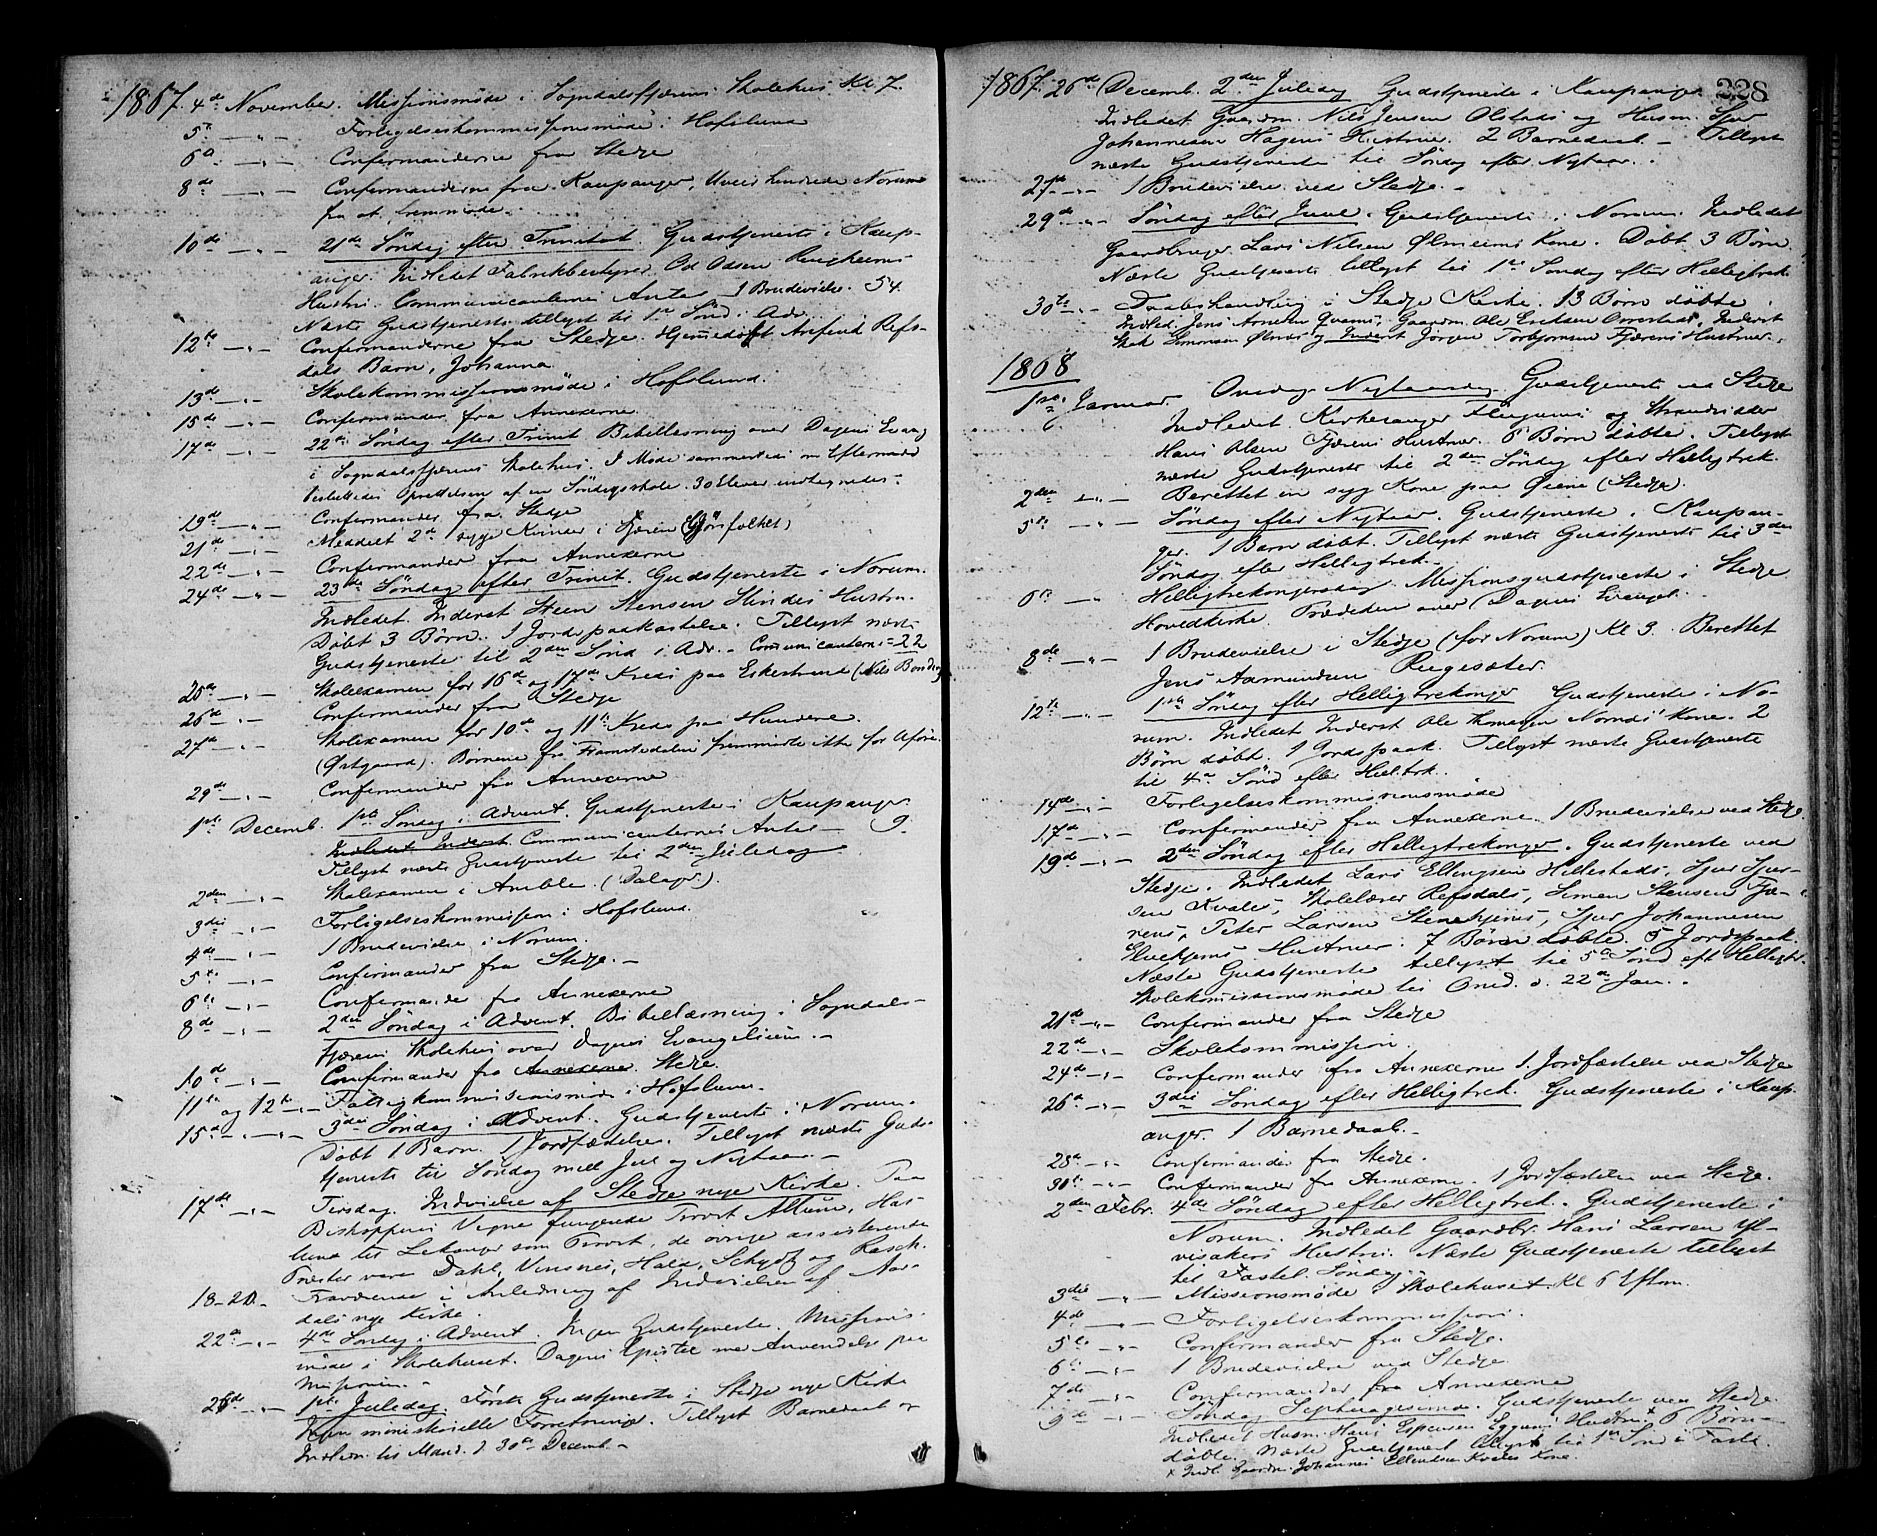 1867. 4de November. Missionsmøde i Sogndalsfjærens Skolehus Kl 7.
5te — " — Forligelseskommissionsmøde i Hofslund
6te — " — Confirmanderne fra Stedje
8de — " — Confirmanderne fra Kaupanger, Uveir hindrede Norum
fra at fremmøde.
10de — " — 21de Søndag efter Trinitat. Gudstjeneste i Kaup-
anger. Indledet Fabrikbestyrer Od Odsen
Hustru. Communicanternes Antal 1 Brudevielse. 54
Næste Gudstjeneste tillyst til 1ste Sønd. i Adv.
12te — " — Confirmanderne fra Stedje. Hjemmedøbt Refs-
dals Barn, Johanna
13de — " — Skolekommissionsmøde i Hofslund.
15de — " — Confirmander fra Annexerne
17de — " — 22de Søndag efter Trinit. Bibellæsning over Dagens Evang
i Sogndalsfjærens Skolehus. I Møde sammesteds om Eftermiddag
Oprettelsen af en Søndagsskole. 30 Elever indtegnedes.
19de — " — Confirmander fra Stedje
21de — " — Meddelt 2de syge Kvinder i Fjæren
22de — " — Confirmander fra Annexerne
24de — " — 23de Søndag efter Trinit. Gudstjeneste i Norum.
Indledet Inderst Steen Stensen Hustru.
Døbt 3 Børn. 1 Jordspaakastelse. Tillyst næste
Gudstjeneste til 2den Sønd i Adv. Communicanter = 22
25de — " — Skoleexamen for 16de og 17de Kreds paa Eskestrand
26de — " — Confirmander fra Stedje
27de — " — Skolexamen for 10de og 11te Kreds paa Hundere.
(Østgaard). Børnene fra fremmødte ikke for
29de — " — Confirmander fra Annexerne
1ste Decemb. 1ste Søndag i Advent. Gudstjeneste i Kaupanger
Indledet Inderst Communicanternes Antal — 9.
Tillyst næste Gudstjeneste til 2den Juledag
2den — " — Skolexamen i Amble.
3die — " — Forligelseskommission i Hofslund.
4de — " — 1 Brudevielse i Norum.
5te — " — Confirmander fra Stedje. —
6te — " — Confirmander fra Annexerne
8de — " — 2den Søndag i Advent. Bibellæsning i Sogndals-
fjærens Skolehus over Dagens Evangelium. —
10de — " — Confirmander fra Annexerne Stedje.
11te og 12te — " — Fattigkommissionsmøde i Hofslund.
15de — " — 3die Søndag i Advent. Gudstjeneste i Norum.
Døbt 1 Barn. 1 Jordfæstelse. Tillyst næste Guds-
tjeneste til Søndag mell Jul og Nytaar —
17de — " — Tirsdag. Indvielse af Stedje nye Kirke. Paa
Bispoppens Vegne fungerede Provst
til Lekanger som Provst, de øvrige assisterende
Præster vare Dahl, Vinsnes, Hald, Schydtz og Rasch.
18–20. Fraværende i Anledning af Indvielsen af Aar-
dals nye Kirke.
22de — " — 4de Søndag i Advent. Ingen Gudstjeneste. Missions-
møde i Skolehuset. Dagens Epistel med Anvendelse paa
Missionen. —
25de — " — 1ste Juledag. Første Gudstjeneste i Stedje nye Kirke
Ingen ministerielle Forretninger. Tillyst Barnedaab og
Indledn. til Mand. d 30te Decemb. —
1867. 26de Decemb. 2den Juledag Gudstjeneste i Kaupanger 228
Indledet Gaardm. Nils Jensen Olstads og Husm. Sjur
Johannesen Hagens Hustruer. 2 Barnedaab. — Tillyst
næste Gudstjeneste til Søndag efter Nytaar.
27de — " — 1 Brudevielse ved Stedje. —
29de — " — Søndag efter Juul. Gudstjeneste i Norum. Indledet
Gaardbruger Lars Nilsen Ølmeims Kone. Døbt 3 Børn.
Næste Gudstjeneste tillyst til 1ste Søndag efter Helligtrek.
30te — " — Daabshandling i Stedje Kirke. 13 Børn døbte.
Indled. Jens Arnesen Qvams, Gaardm. Ole Eriksen Inderst
Simonsen Ølnes og Inderst Jørgen Torbjørnsen Fjærens Hustruer.
1868
1ste Januar. Onsdag Nytaarsdag. Gudstjeneste ved Stedje
Indledet Kirkesanger og Strandsidder
Hans Olsen Fjærens Hustruer. 6 Børn døbte. Tillyst
næste Gudstjeneste til 2den Søndag efter Helligtrek.
2den — " — Berettet en syg Kone paa Øiene (Stedje).
5te — " — Søndag efter Nytaar. Gudstjeneste i Kaupan-
ger. 1 Barn døbt. Tillyst næste Gudstjeneste til 3den
Søndag efter Helligtrek.
6te — " — Helligtrekongersdag. Missionsgudstjeneste i Stedje
Hovedkirke. Prædiken over Dagens Evangel.
8de — " — 1 Brudevielse i Stedje (for Norum) Kl 3. Berettet
Jens Aamundsen Rugesæter.
12te — " — 1ste Søndag efter Helligtrekonger Gudstjeneste i No-
rum. Indledet Inderst Ole Thomasen Norums Kone. 2
Børn døbt. 1 Jordspaak. Tillyst næste Gudstjeneste
til 4de Sønd efter Helltrk.
14de — " — Forligelseskommissionsmøde
17de — " — Confirmander fra Annexerne. 1 Brudevielse ved Stedje.
19de — " — 2den Søndag efter Helligtrekonger. Gudstjeneste ved
Stedje. Indledet Lars Ellingsen Hillestads, Sjur Sjur-
sen Kvales, Skolelærer Refsdals, Simen Stensen Fjæ-
rens, Peter Larsen Stenehjems, Sjur Johannesen
Hustruer. 7 Børn døbte. 5 Jordspaak.
Næste Gudstjeneste tillyst til 5te Sønd eft Helligtr.
Skolekomissionsmøde til Onsd. d. 22de Jan.
21de — " — Confirmander fra Stedje
22de — " — Skolekommission.
24de — " — Confirmander fra Annexerne 1 Jordfæstelse ved Stedje
26de — " — 3die Søndag efter Helligtrek. Gudstjeneste i Kaup-
anger. 1 Barnedaab. —
28de — " — Confirmander fra Stedje.
30te — " — Confirmander fra Annexerne. 1 Jordfæstelse ved Stedje.
2den Febr. 4de Søndag efter Helligtrek. Gudstjeneste i
Norum. Indledet Gaardbr. Hans Larsen Yl-
visakers Hustru. Næste Gudstjeneste tillyst
til Fastel. Søndag.
3die — " — Missionsmøde i Skolehuset. Kl 6 Eftm.
4de — " — Forligelseskommission.
5te — " — Confirmander fra Stedje.
6te — " — 1 Brudevielse ved Stedje.
7de — " — Confirmander fra Annexerne
9de — " — Søndag Septuagesima. Gudstjeneste ved Stedje
Indledet Husm. Hans Espensen Eggums Hustru x 6 Børn
døbte. Næste Gudstjenest tillyst til 1ste Sønd i Faste.
x Indl. Gaardm. Johannes Ellendsen Kvales Kone.